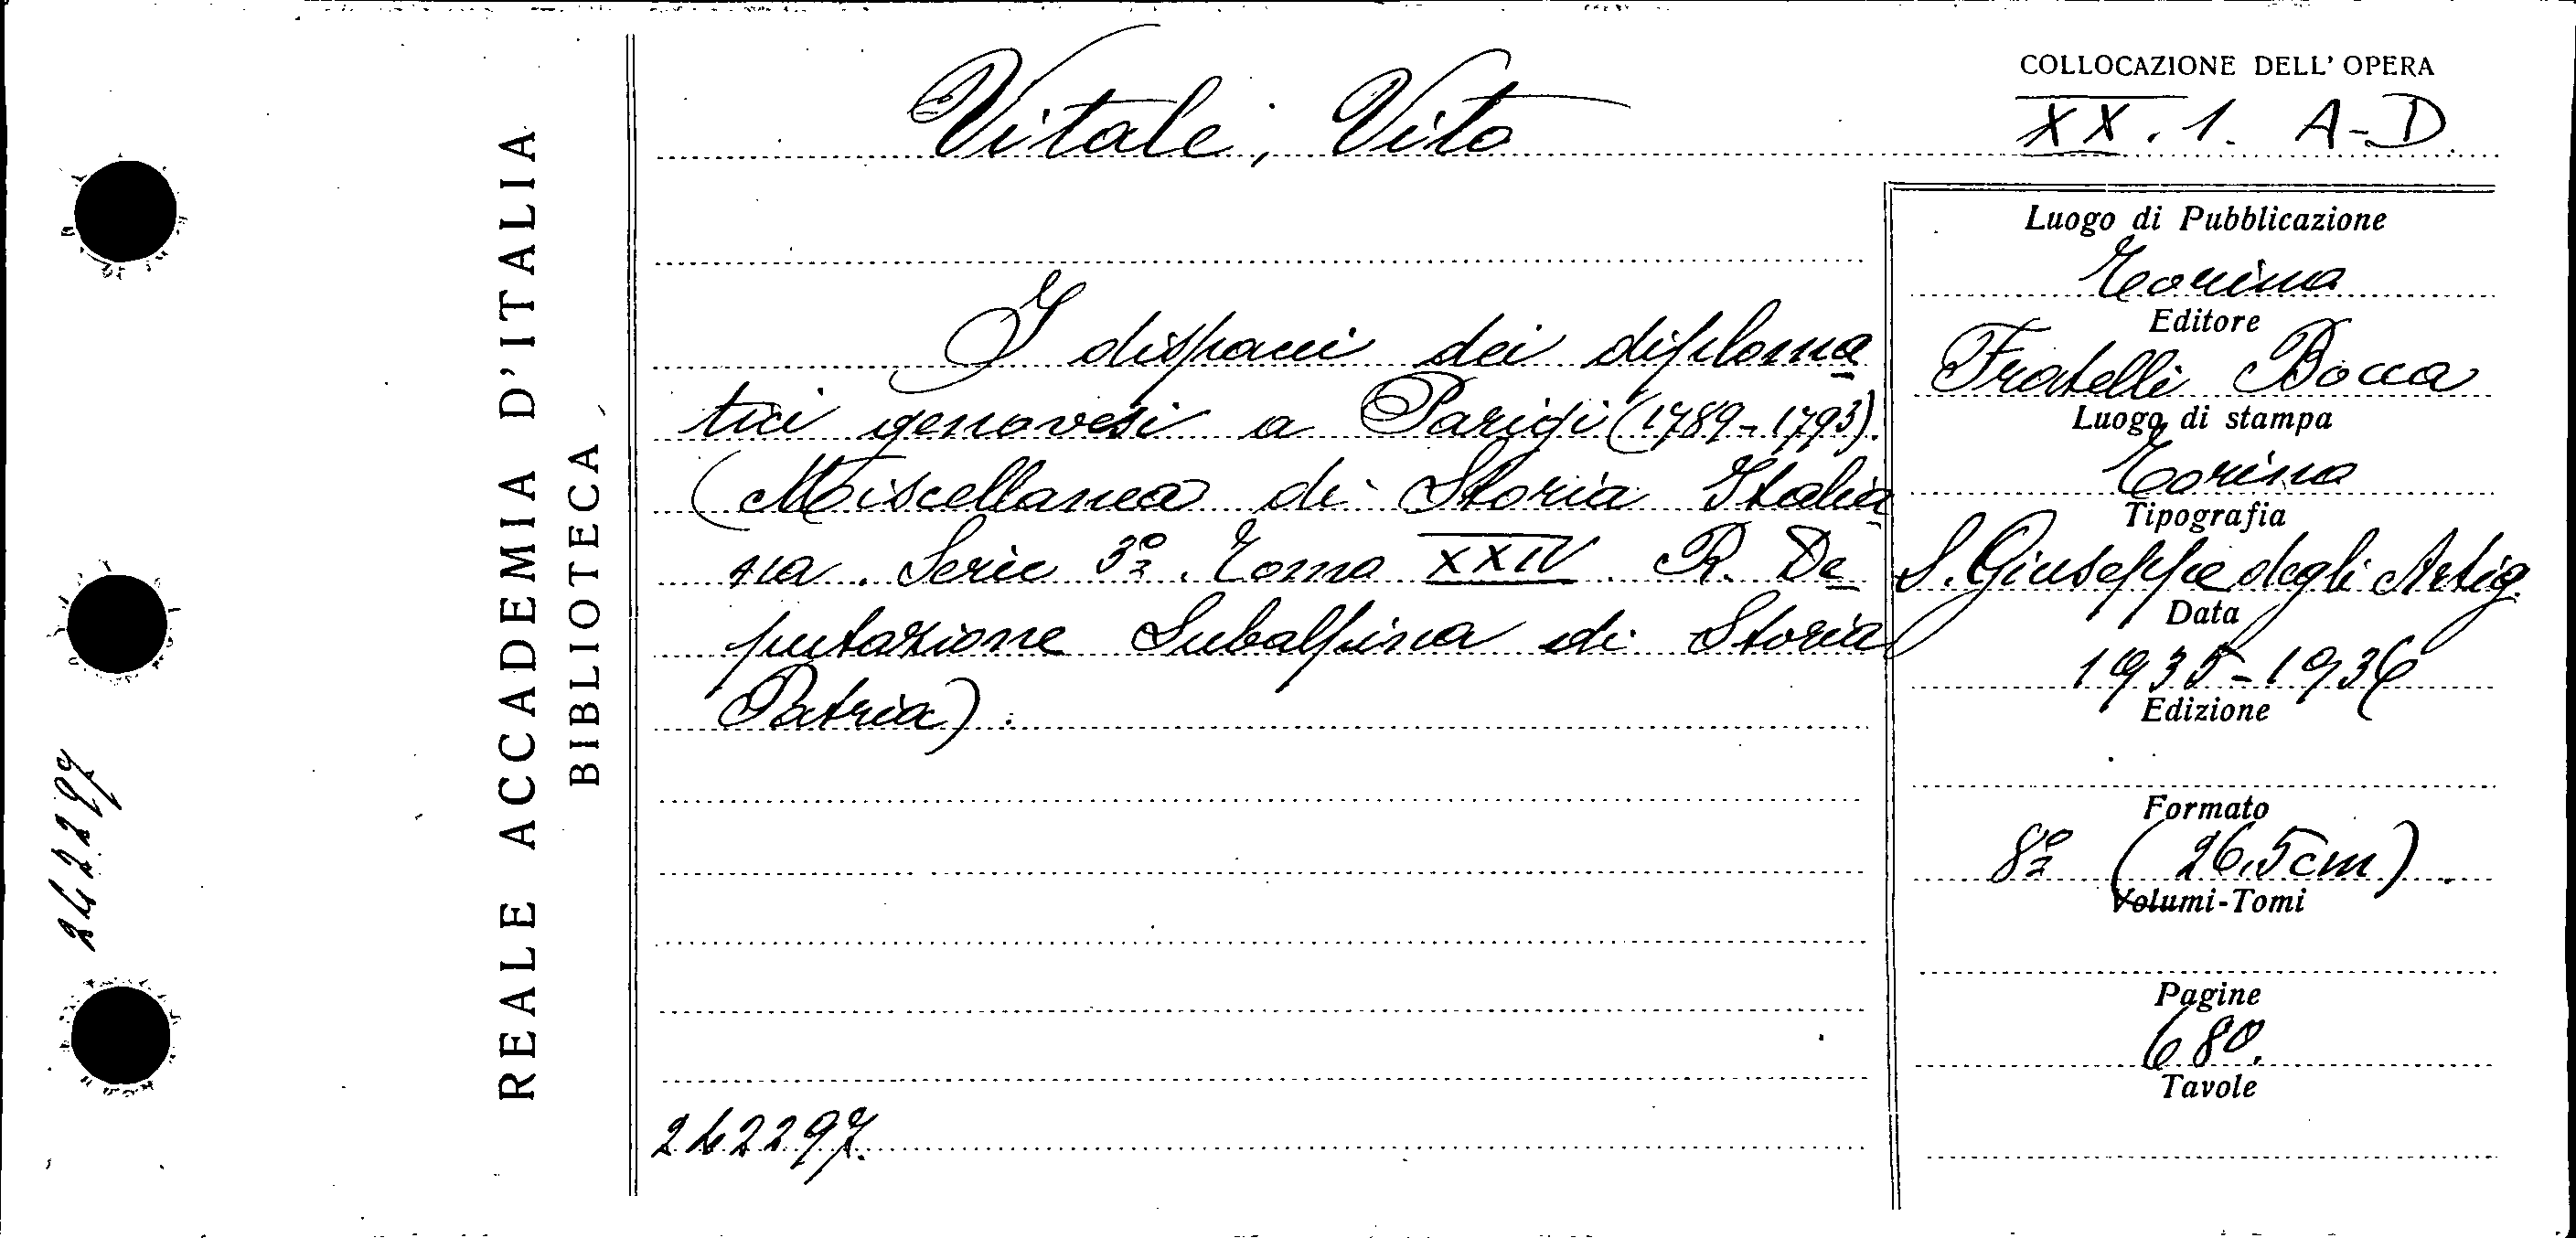 242297
REALE ACCADEMIA D'ITALIA
BIBLIOTECA
Vitale, Vito
I dispacci dei diploma
tici genovesi a Parigi (1789-1793).
(Miscellanea di Storia Italia
na. Serie 3ª. Tomo XXIV R. De
putazione Subalpina di Storia
Patria).
242297.
COLLOCAZIONE DELL'OPERA
XX. 1. A-D.
Luogo di Pubblicazione
Torino
Editore
Fratelli Bocca
Luogo di stampa
Torino
Tipografia
S. Giuseppe degli Artig.
Data
1935-1936
Edizione
Formato
8º (26,5cm).
Volumi-Tomi
Pagine
680.
Tavole